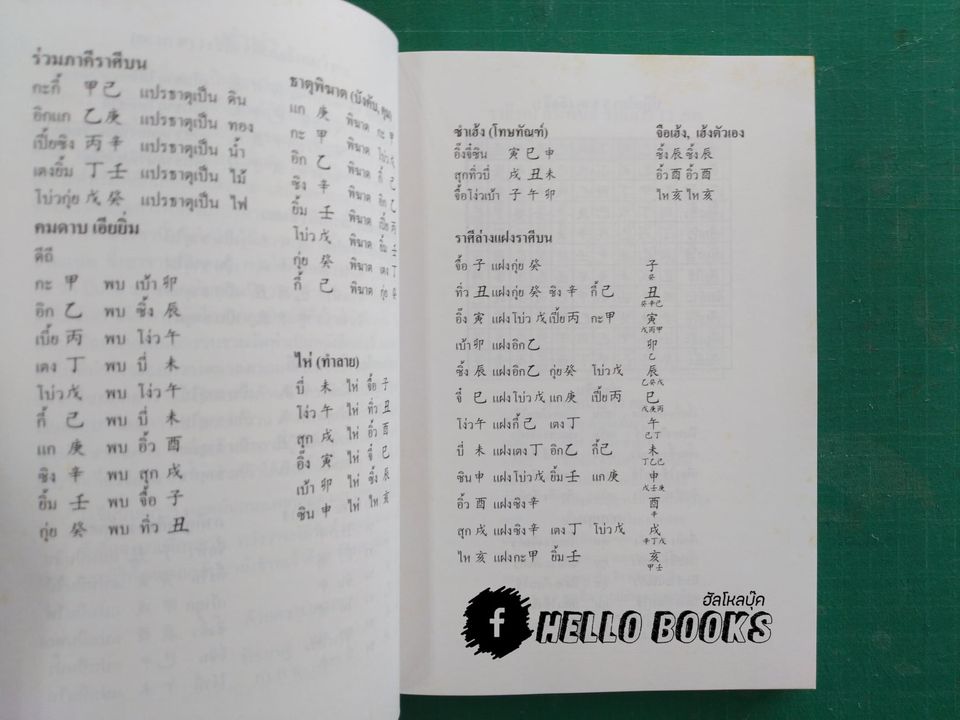 ร่วมภาคีราศีบน
กะกี้ 甲己 แปรธาตุเป็น ดิน
อิกแก 乙庚 แปรธาตุเป็น ทอง
เปี้ยซิง 丙辛 แปรธาตุเป็น น้ำ
เตงยิ้ม 丁壬 แปรธาตุเป็น ไม้
โบ่วกุ่ย 戊癸 แปรธาตุเป็น ไฟ
คมดาบ เอียยิ่ม
ดีถี
กะ 甲 พบ เบ้า 卯
อิก 乙 พบ ซิ้ง 辰
เปี้ย 丙 พบ โง่ว 午
เตง 丁 พบ บี่ 未
โบ่ว 戊 พบ โง่ว 午
กี้ 己 พบ บี่ 未
แก 庚 พบ อิ้ว 酉
ซิง 辛 พบ สุก 戌
ยิ้ม 壬 พบ จื้อ 子
กุ่ย 癸 พบ ทิ่ว 丑
ธาตุพิฆาต (บังคับ,
แก 庚 พิฆาต กะ 甲
กะ 甲 พิฆาต โบ่ว
อิก 乙 พิฆาต กี้ 己
ซิง 辛 พิฆาต อิก 乙
ยิ้ม 壬 พิฆาต เปี้ย 丙
โบ่ว 戊 พิฆาต ยิ้ม 壬
กุ่ย 癸 พิฆาต เตง 丁
กี้ 己 พิฆาต กุ่ย 癸
ไห่ (ทำลาย)
บี่ 未 ไห่ จื้อ 子
โง่ว 午 ไห่ ทิ่ว 丑
สุก 戌 ไห่ อิ้ว 酉
อิ๊ง 寅 ไห่ จี๋ 巳
เบ้า 卯 ไห่ ซิ้ง 辰
ซิน 申 ไห่ ไห 亥
ซำเฮ้ง (โทษทัณฑ์)
อิ๊งจี๋ซิน 寅巳申
สุกทิ่วบี่ 戌丑未
จื้อโง่วเบ้า 子午卯
จือเฮ้ง, เฮ้งตัวเอง
ซิ้ง辰 ซิ้ง辰
อิ้ว酉 อิ้ว酉
ไห亥 ไห亥
ราศีล่างแฝงราศีบน
จื้อ 子 แฝงกุ่ย 癸 子
癸
ทิ่ว 丑 แฝงกุ่ย 癸 ซิง 辛 กี้ 己 丑
癸辛己
อิ๊ง 寅 แฝงโบ่ว 戊 เปี้ย 丙 กะ甲 寅
戊丙甲
เบ้า 卯 แฝงอิก乙 卯
乙
ซิ้ง 辰 แฝงอิก乙 กุ่ย 癸 โบ่ว戊 辰
乙癸戊
จี๋ 巳 แฝงโบ่ว戊 แก庚 เปี้ย丙 巳
戊庚丙
โง่ว午 แฝงกี้己 เตง丁 午
己丁
บี่ 未 แฝงเตง丁 อิก乙 กี้己 未
丁乙己
ซิน申 แฝงโบ่ว戊 ยิ้ม壬 แก 庚 申
戊壬庚
อิ้ว 酉 แฝงซิง辛 酉
辛
สุก戌 แฝงซิง辛 เตง丁 โบ่ว戊 戌
辛丁戊
ไห 亥 แฝงกะ甲 ยิ้ม壬 亥
甲壬
ฮัลโหลบุ๊ค
f HELLO BOOKS